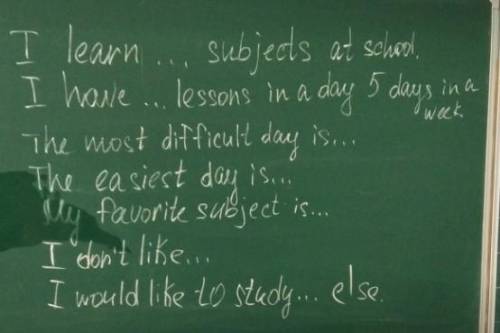 I learn ... subjects at school.
I have ... lessons in a day 5 days in a
week
The most difficult day is...
The easiest day is...
My favorite subject is...
I don't like...
I would like to study... else.